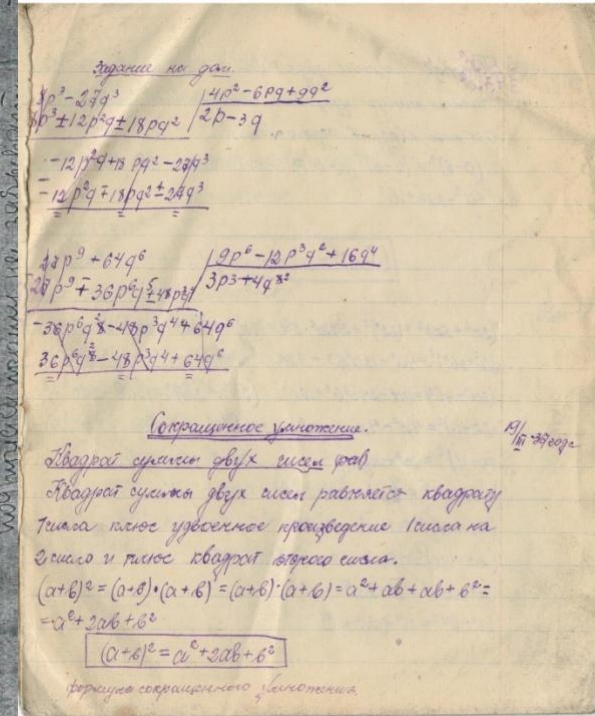 Задание на дом.
8p³ − 27q³ | 4p² − 6pq + 9q²
8p³ ± 12p²q ± 18pq² | 2p − 3q
−12p²q + 18pq² − 27q³
−12p²q ∓ 18pq² ± 27q³
27p⁹ + 64q⁶ | 9p⁶ − 12p³q² + 16q⁴
27p⁹ ∓ 36p⁶q | 3p3 + 4q²
−36p⁶q² − 48p³q⁴ + 64q⁶
36p⁶q² − 48p³q⁴ + 64q⁶
Сокращенное умножение.
19/III-39 года
Квадрат суммы двух чисел
Квадрат суммы двух чисел равняется квадрату
1 числа плюс удвоенное произведение 1 числа на
2 число и плюс квадрат второго числа.
(a+b)² = (a+b)·(a+b) = (a+b)·(a+b) = a² + ab + ab + b² =
= a² + 2ab + b²
(a+b)² = a² + 2ab + b²
формула сокращенного умножения